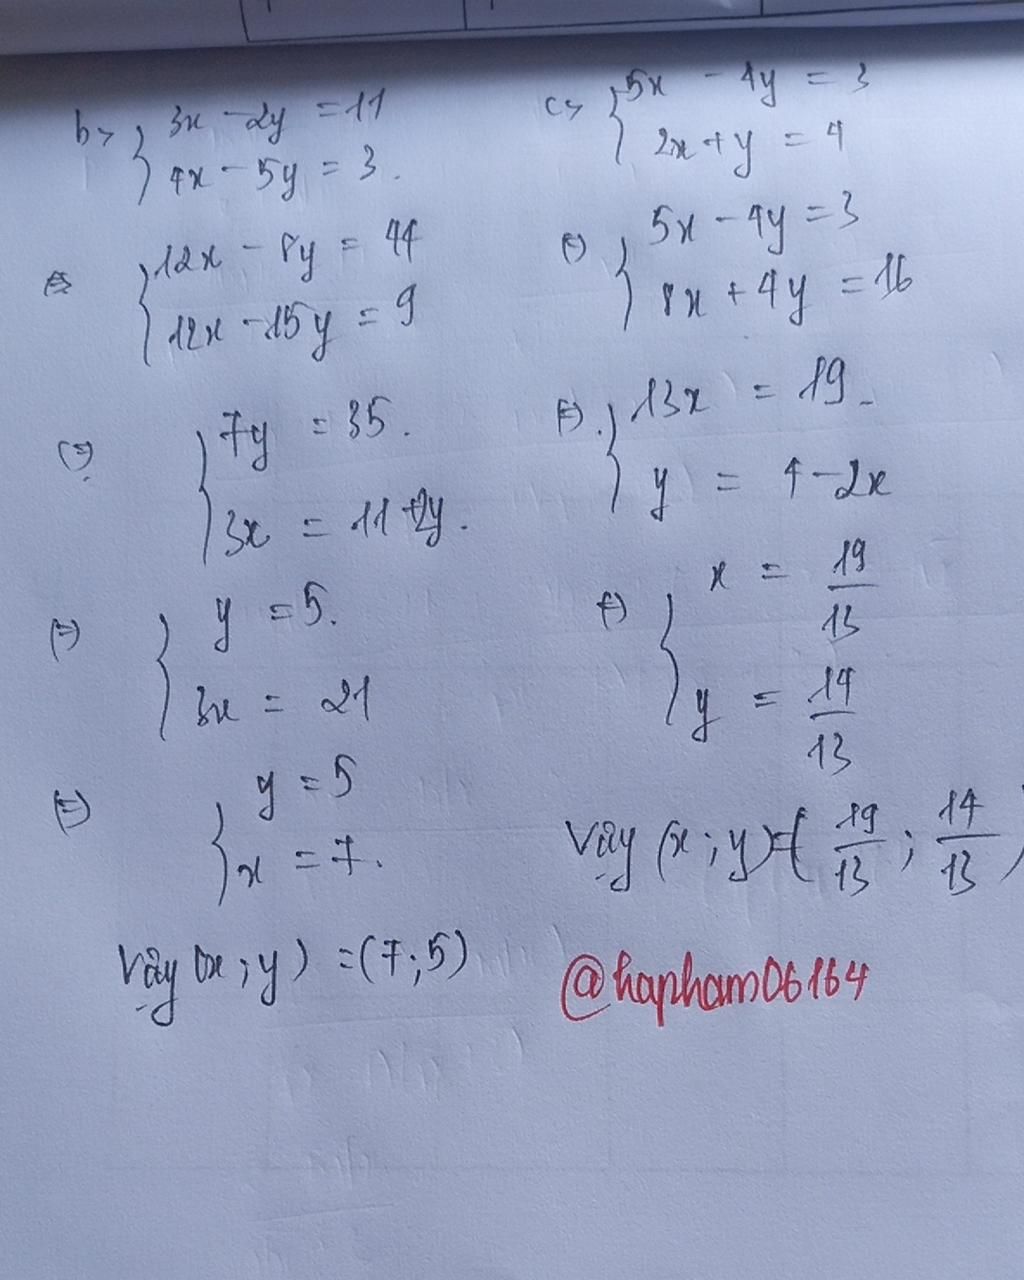 b> { 3x - 2y = 11
4x - 5y = 3.
(=) { 12x - 8y = 44
12x - 15y = 9
(=) { 7y = 35.
3x = 11 + 2y.
(=) { y = 5.
3x = 21
(=) { y = 5
x = 7.
Vậy (x ; y) = (7 ; 5)
c> { 5x - 4y = 3
2x + y = 4
(=) { 5x - 4y = 3
8x + 4y = 16
(=) { 13x = 19
y = 4 - 2x
(=) { x = 19/13
y = 14/13
Vậy (x ; y) = ( 19/13 ; 14/13 )
@hapham06164